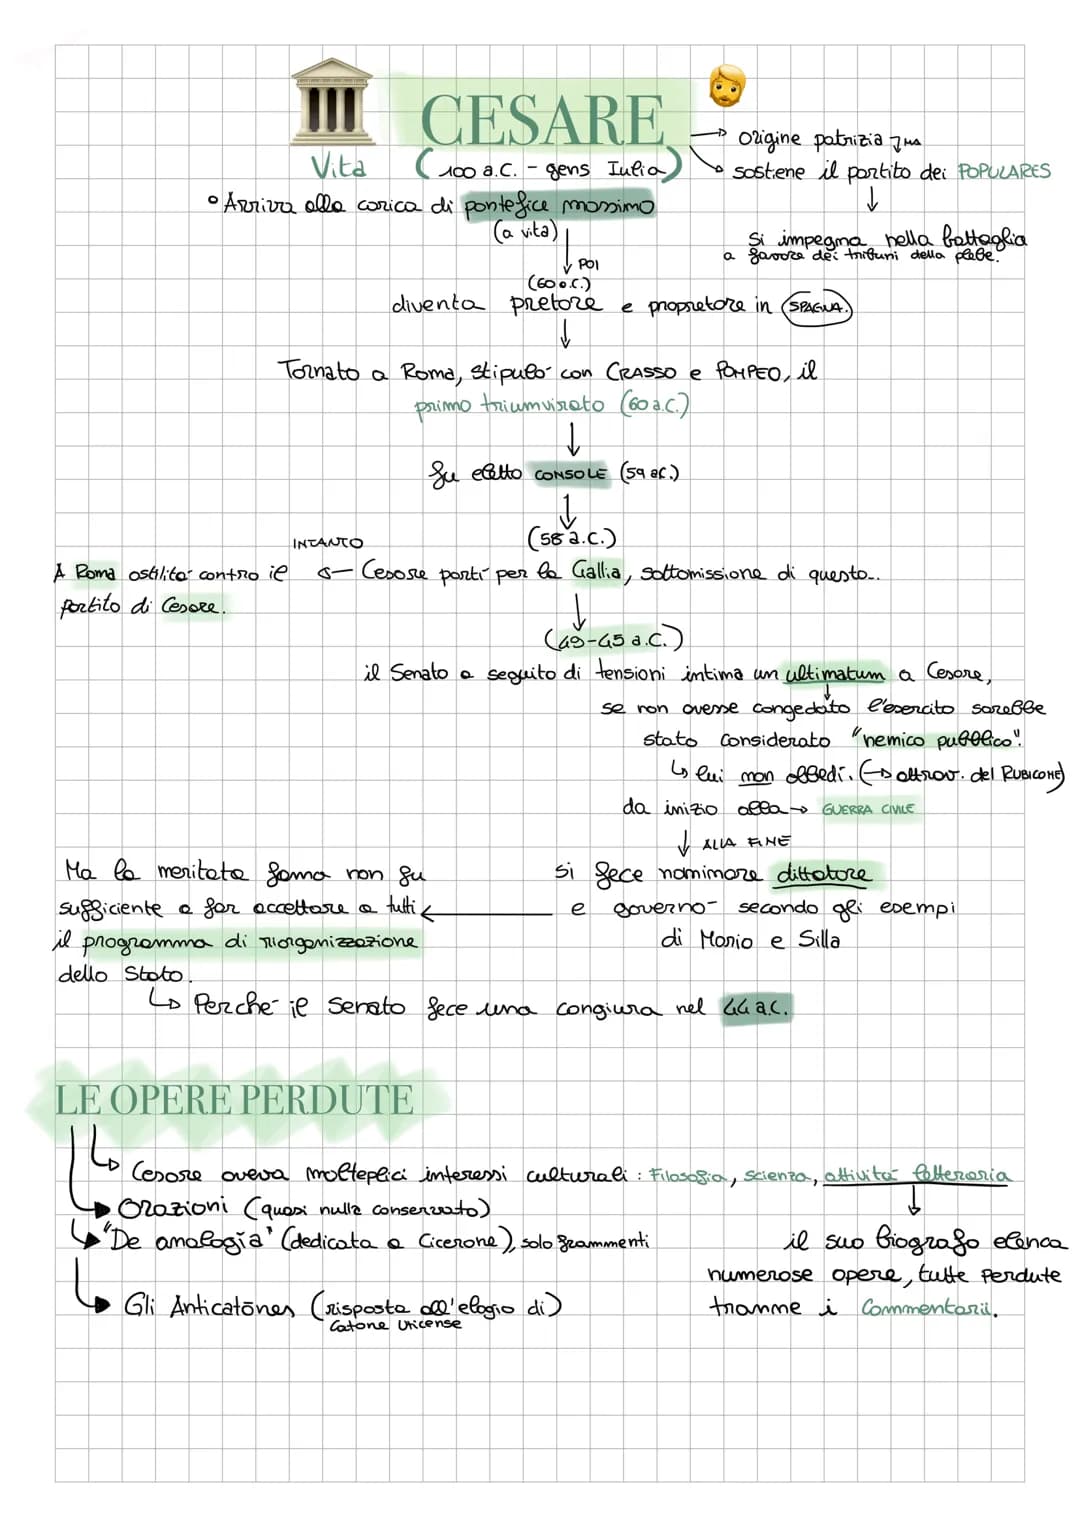 CESARE
Vita
(100 a.C. - gens Iulia)
→ origine patrizia ma
→ sostiene il partito dei POPULARES
↓
si impegna nella battaglia
a favore dei tribuni della plebe.
• Arriva alla carica di pontefice massimo
(a vita)
↓ POI
(60 a.C.)
diventa pretore e propretore in SPAGNA.
↓
Tornato a Roma, stipulò con CRASSO e POMPEO, il
primo triumvirato (60 a.C.)
↓
fu eletto CONSOLE (59 a.C.)
↓
(58 a.C.)
INTANTO
A Roma ostilità contro il ← Cesare partì per la Gallia, sottomissione di questo..
partito di Cesare.
↓
(49-45 a.C.)
il Senato a seguito di tensioni intima un ultimatum a Cesare,
↓
se non avesse congedato l'esercito sarebbe
stato considerato "nemico pubblico".
↳ lui non obbedì. (→ attrav. del RUBICONE)
da inizio alla → GUERRA CIVILE
↓ ALLA FINE
si fece nominare dittatore
e governò secondo gli esempi
di Mario e Silla
←
Ma la meritata fama non fu
sufficiente a far accettare a tutti
il programma di riorganizzazione
dello Stato.
↳ Perchè il senato fece una congiura nel 44 a.C.
LE OPERE PERDUTE
↳ Cesare aveva molteplici interessi culturali : Filosofia, scienza, attività letteraria
↓
il suo biografo elenca
numerose opere, tutte perdute
tranne i Commentarii.
↳ Orazioni (quasi nulla conservato)
↳ "De analogia" (dedicata a Cicerone), solo frammenti
↳ Gli Anticatōnes (risposta all'elogio di)
Catone Uticense